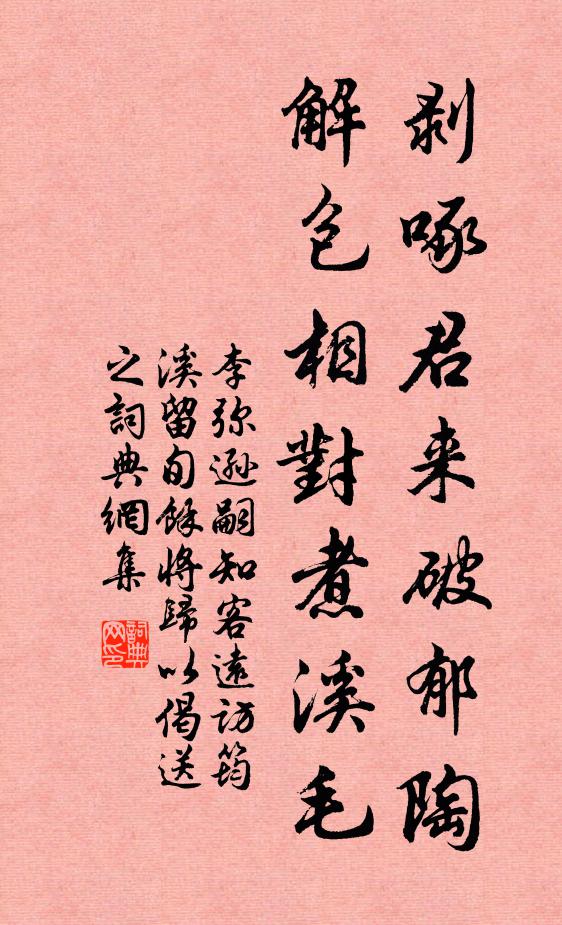 剥啄君来破郁陶
解包相對煮溪毛
李弥遜嗣知客遠訪筠
溪留旬餘将歸以偈送
之詞典網集
詞典网印